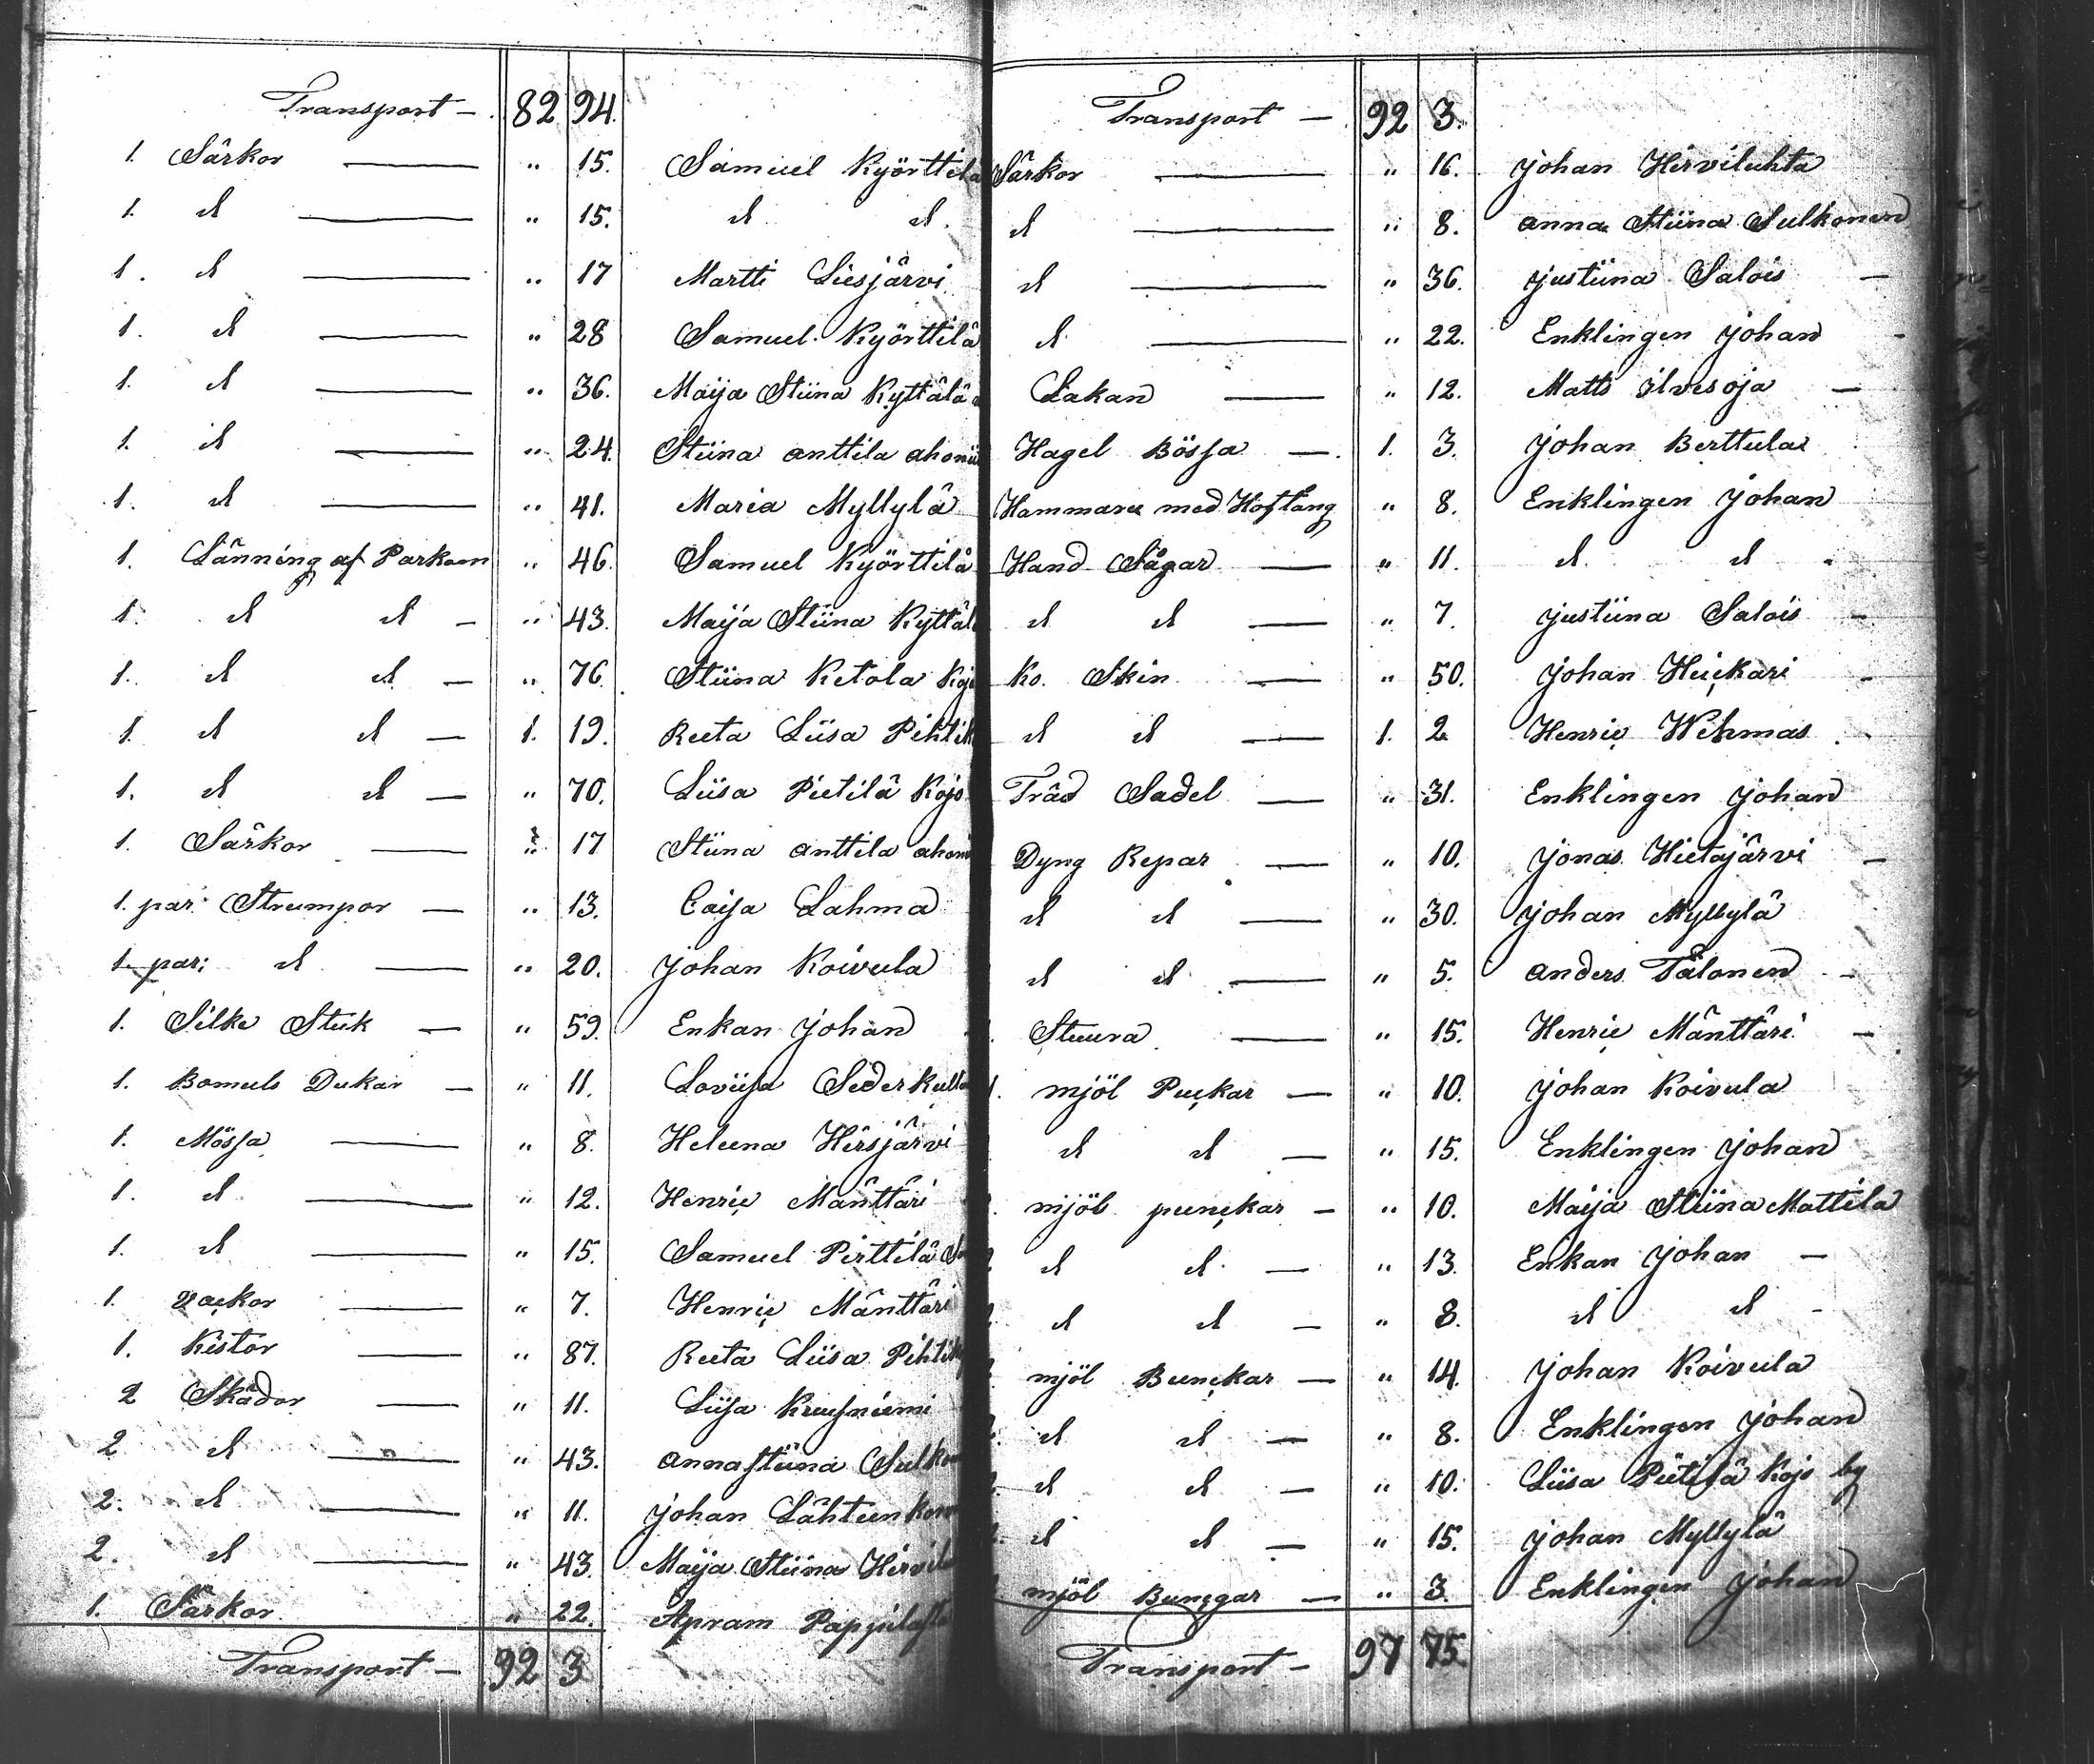 Transport — 82 94.
1. Särkor — " 15. Samuel Kyörttilä
1. d — " 15. d d.
1. d — " 17 Martti Liesjärvi
1. d — " 28 Samuel Kyörttilä
1. d — " 36. Maija Stiina Kyttälä
1. d — " 24. Stiina anttila
1. d — " 41. Maria Myllylä
1. Länning af Parkum " 46. Samuel Kyörttilä
1. d d — " 43. Maija Stiina
1. d d — " 76. Stiina Ketola
1. d d — 1. 19. Reeta Liisa
1. d d — " 70. Liisa Pietilä Kojo
1. Särkor — " 17 Stiina anttila
1. par Strumpor — " 13. Caisa Lahma
1. par: d — " 20. Johan Koivula
1. Silke Stuk — " 59. Enkan Johan
1. Bomuls Dukar — " 11. Loviisa
1. Mössa — " 8. Heleena Hirsjärvi
1. d — " 12. Henric Mänttäri
1. d — " 15. Samuel Pirttilä
1. Vackor — " 7. Henric Mänttäri
1. Kistor — " 87. Reeta Liisa
2 Skådor — " 11. Liisa
2 d — " 43. anna stiina
2. d — " 11. Johan
2. d — " 43. Maija Stiina
1. Särkor " 22. Apram
Transport — 92 3
Transport — 92 3.
Särkor — " 16. Johan Hirviluhta
d — " 8. anna Stiina Sulkonen
d — " 36. Justiina Salois —
d — " 22. Enklingen Johan -
Lakan — " 12. Matts ilvesoja —
Hagel Bössa — 1. 3. Johan Berttula
Hammare med Hoftång " 8. Enklingen Johan
Hand Sågar — " 11. d d
d d — " 7. Justiina Salois —
Ko. Skin — " 50. Johan Huickari
d d — 1. 2 Henric Wehmas
Träd Sadel — " 31. Enklingen Johan
Dyng Repar — " 10. Jonas Hietajärvi —
d d — " 30. Johan Myllylä
d d — " 5. anders Tålonen -
Stuura — " 15. Henric Mänttäri —
mjöl Puckar — " 10. Johan Koivula
d d — " 15. Enklingen Johan
mjöl punckar — " 10. Maija Stiina Mattila
d d — " 13. Enkan Johan —
d d — " 8. d d -
mjöl Bunckar — " 14. Johan Koivula
d d — " 8. Enklingen Johan
d d — " 10. Liisa Pietilä Kojo by
d d — " 15. Johan Myllylä
mjöl Buncgar — " 3. Enklingen Johan
Transport — 97 75.